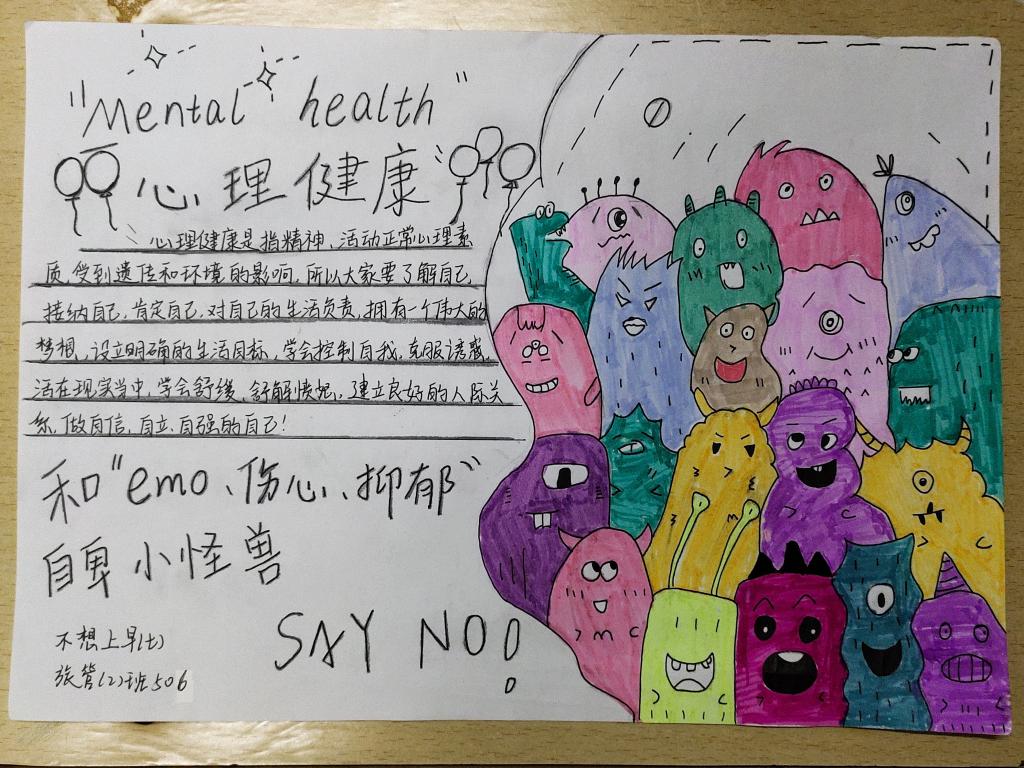 "Mental health"
心理健康
心理健康是指精神、活动正常心理素
质,受到遗传和环境的影响,所以大家要了解自己,
接纳自己,肯定自己,对自己的生活负责,拥有一个伟大的
梦想,设立明确的生活目标,学会控制自我,克服诱惑,
活在现实当中,学会舒缓,舒解愤怒,建立良好的人际关
系,做自信,自立,自强的自己!
和"emo、伤心、抑郁"
自卑小怪兽
SAY NO!
不想上早(七)
张管(2)班506